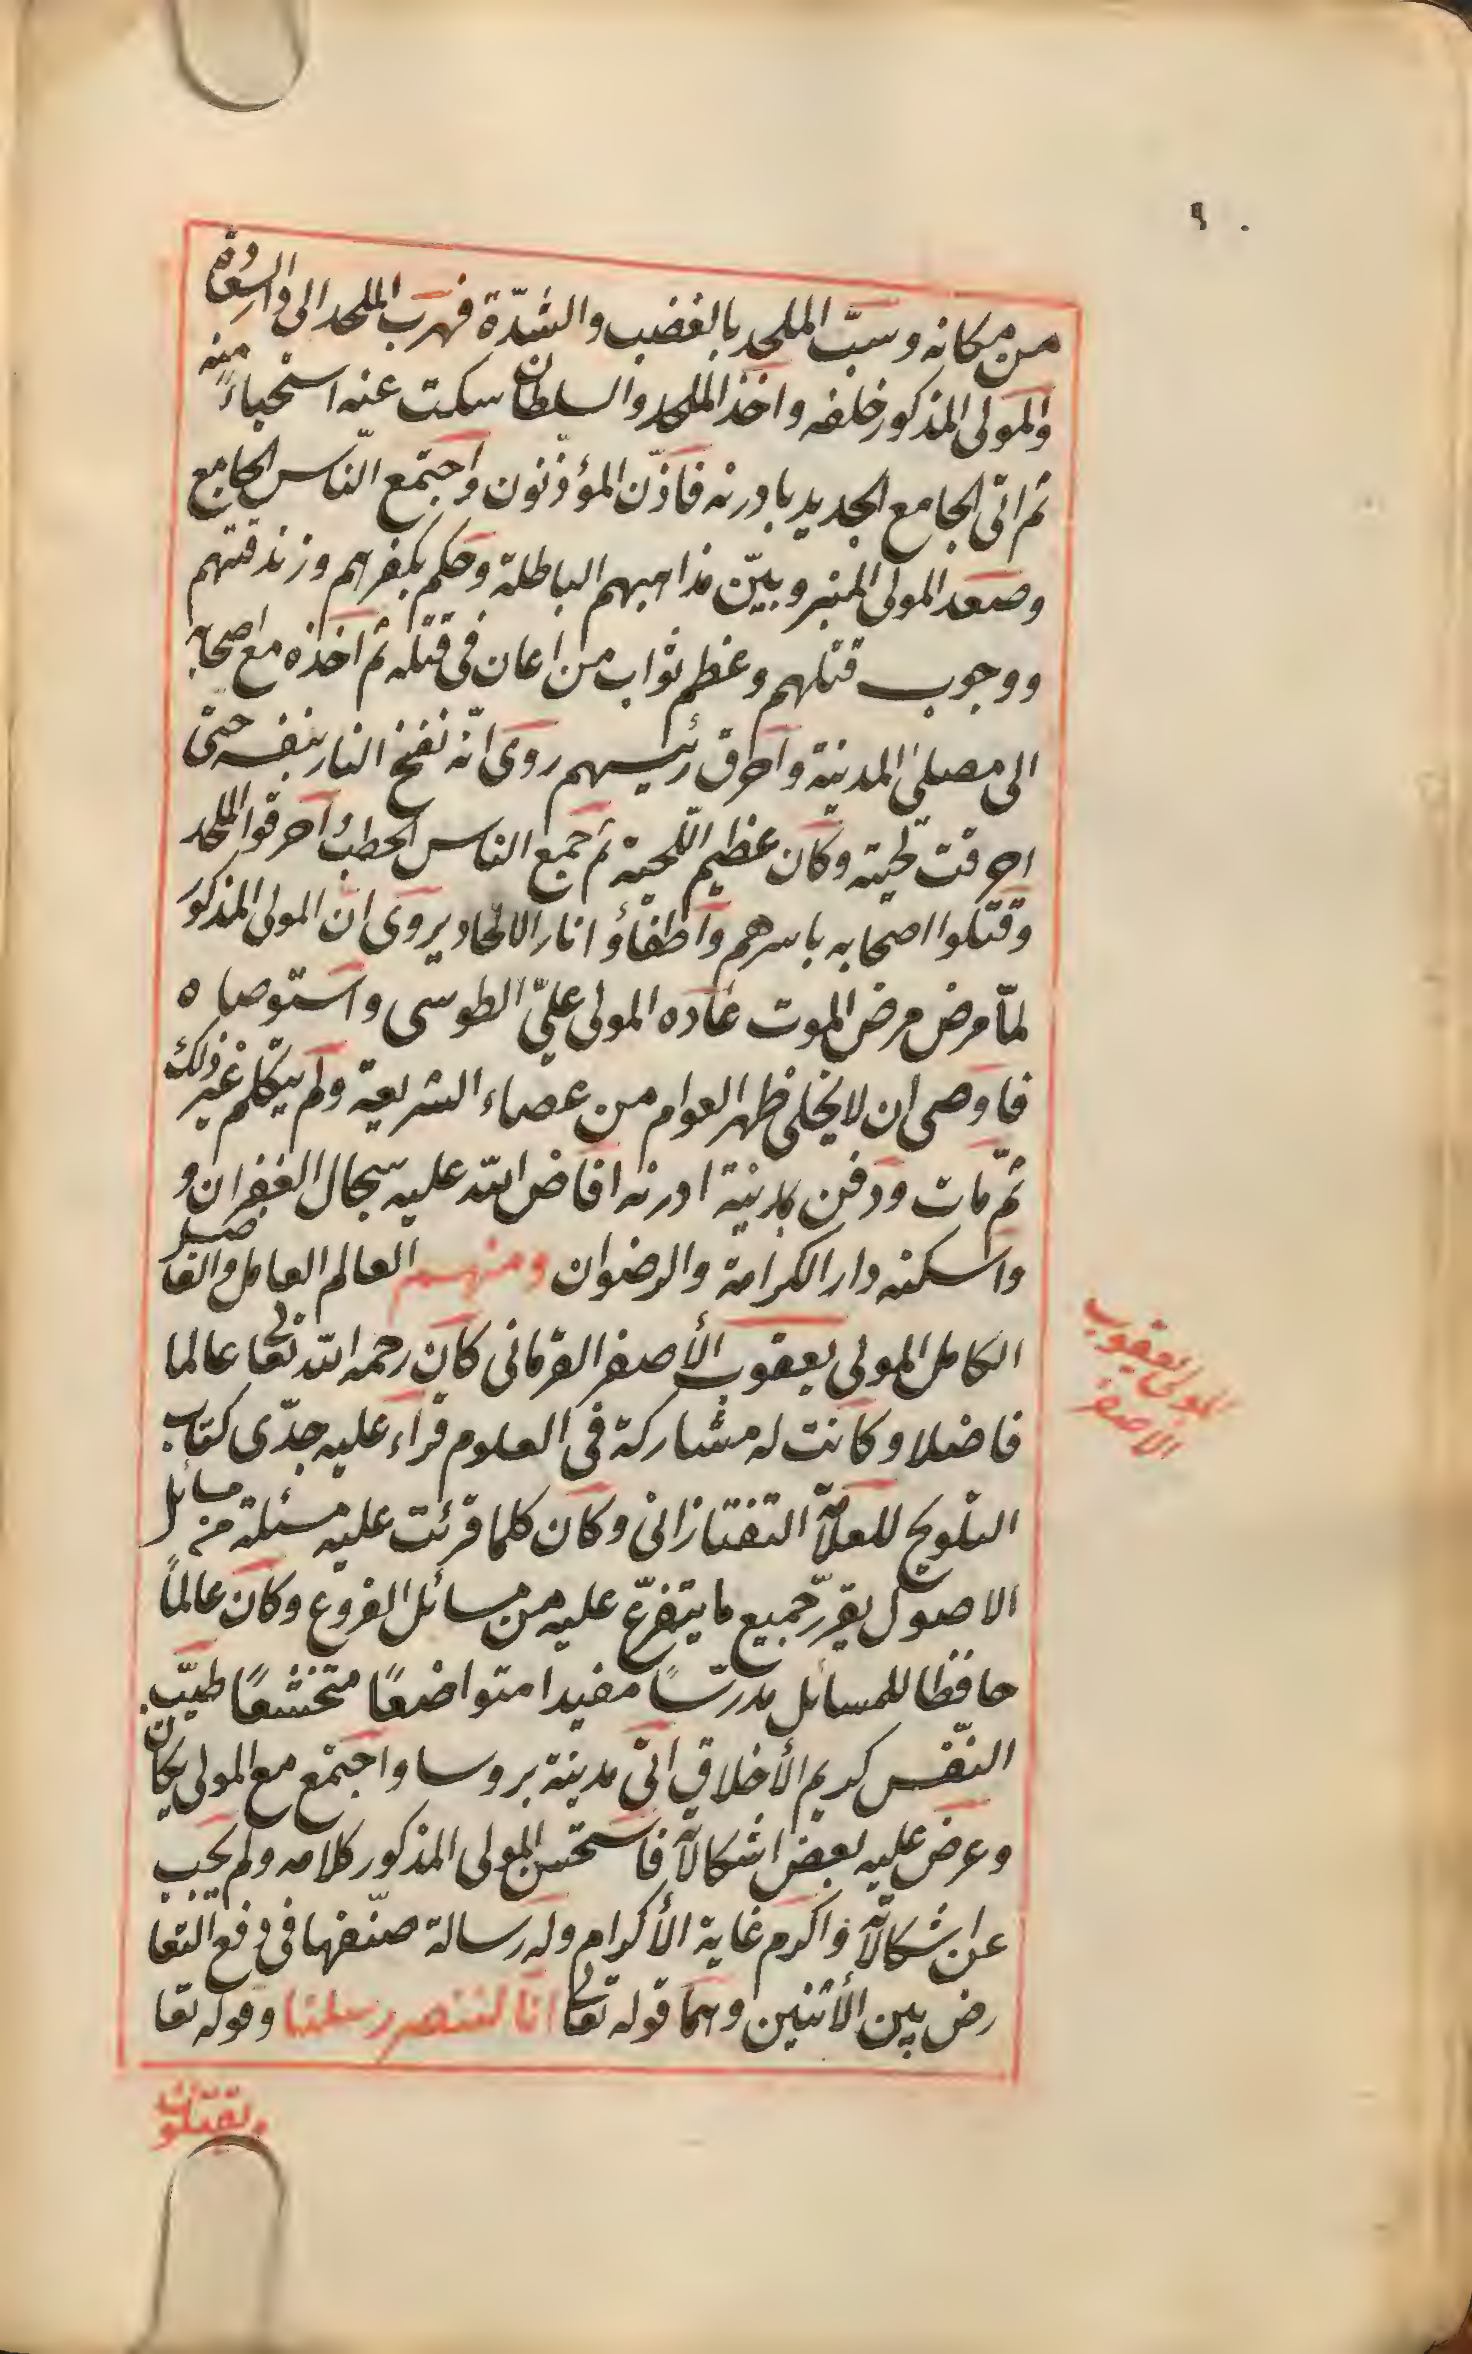 ٩٠
من مكانه وسبّ الملحد بالغضب والشدّة فهرب الملحد الى دار السعادة
والمولى المذكور خلفه واخذ الملحد والسلطان سكت عنه استحياءً منه
ثم اتى الجامع الجديد بادرنه فاذّن المؤذنون واجتمع النّاس الجامع
وصعد المولى المنبر وبيّن مذاهبهم الباطلة وحكم بكفرهم وزندقتهم
ووجوب قتلهم وعظم ثواب من اعان فى قتله ثم اخذه مع اصحابه
الى مصلى المدينة واحرق رئيسهم روى انّه نفخ النار بنفسه حتى
احرقت لحيته وكان عظيم اللّحية ثم جمع الناس الحطب واحرقوا الملحد
وقتلوا اصحابه باسرهم واطفأوا نار الالحاد يروى ان المولى المذكور
لمّا مرض مرض الموت عاده المولى علىّ الطوسى واستوصاه
فاوصى ان لا يخلى ظهر العوام من عصاء الشريعة ولم يتكلم غير ذلك
ثمّ مات ودفن بمدينة ادرنه افاض الله عليه سجال الغفران و
واسكنه دار الكرامة والرضوان ومنهم العالم العامل والفاضل
الكامل المولى يعقوب الأصفر القرمانى كان رحمه الله تعالى عالما
فاضلا وكانت له مشاركة فى العلوم قراء عليه جدّى كتاب
التلويح للعلاّمة التفتازانى وكان كلما قرئت عليه مسئلة من مسائل
الاصول يقرّر جميع ما يتفرّع عليه من مسائل الفروع وكان عالماً
حافظا للمسائل مدرّساً مفيدا متواضعًا متخشعًا طيّب
النفس كريم الأخلاق اتى مدينة بروسا واجتمع مع المولى يكان
وعرض عليه بعض اشكالاته فاستحسن المولى المذكور كلامه ولم يجب
عن اشكالاته واكرم غاية الأكرام وله رسالة صنّفها فى دفع التعا
رض بين الأثنين وهما قوله تعالى انا لننصر رسلنا وقوله تعا
المولى يعقوب
الاصفر
ويقتلون